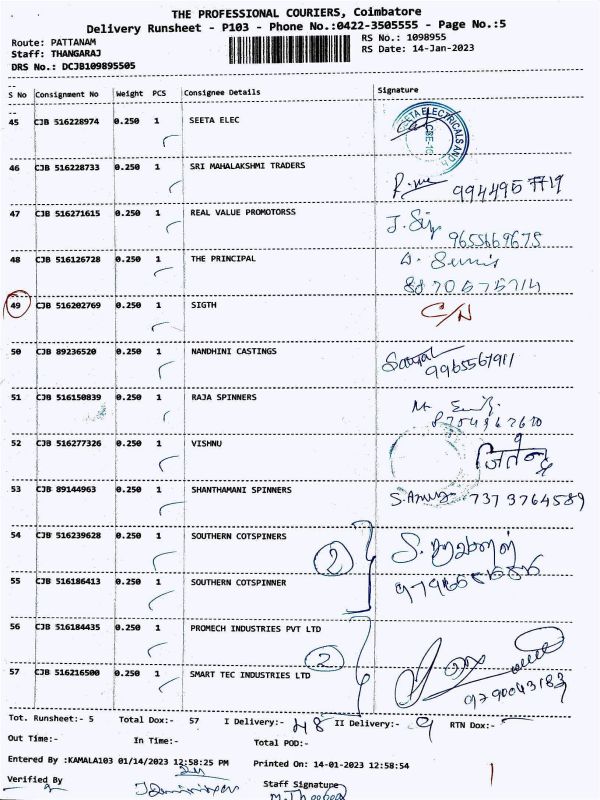 THE PROFESSIONAL COURIERS, Coimbatore
Delivery Runsheet - P103 - Phone No.:0422-3505555 - Page No.:5
Route: PATTANAM RS No.: 1098955
Staff: THANGARAJ RS Date: 14-Jan-2023
DRS No.: DCJB109895505
S No Consignment No Weight PCS Consignee Details Signature
45 CJB 516228974 0.250 1 SEETA ELEC
46 CJB 516228733 0.250 1 SRI MAHALAKSHMI TRADERS
9944957719
47 CJB 516271615 0.250 1 REAL VALUE PROMOTORSS
9655669675
48 CJB 516126728 0.250 1 THE PRINCIPAL
8870575714
49 CJB 516202769 0.250 1 SIGTH C/N
50 CJB 89236520 0.250 1 NANDHINI CASTINGS
9965567911
51 CJB 516150839 0.250 1 RAJA SPINNERS
52 CJB 516277326 0.250 1 VISHNU
53 CJB 89144963 0.250 1 SHANTHAMANI SPINNERS
7373764589
54 CJB 516239628 0.250 1 SOUTHERN COTSPINERS
2
55 CJB 516186413 0.250 1 SOUTHERN COTSPINNER
56 CJB 516184435 0.250 1 PROMECH INDUSTRIES PVT LTD
2
57 CJB 516216500 0.250 1 SMART TEC INDUSTRIES LTD
9790043183
Tot. Runsheet:- 5 Total Dox:- 57 I Delivery:- 48 II Delivery:- 9 RTN Dox:-
Out Time:- In Time:- Total POD:-
Entered By :KAMALA103 01/14/2023 12:58:25 PM Printed On: 14-01-2023 12:58:54
Verified By Staff Signature